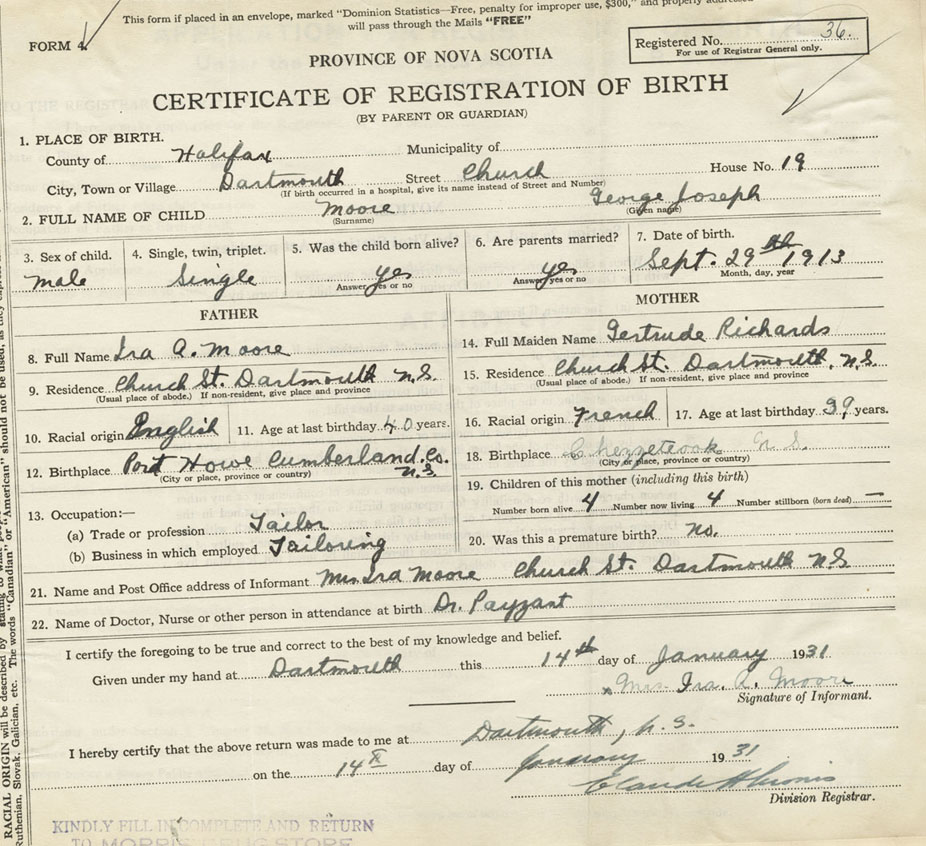 This form if placed in an envelope, marked "Dominion Statistics—Free, penalty for improper use, $300," and properly addressed
will pass through the Mails "FREE"
FORM 4.
Registered No. 36.
For use of Registrar General only.
PROVINCE OF NOVA SCOTIA
CERTIFICATE OF REGISTRATION OF BIRTH
(BY PARENT OR GUARDIAN)
1. PLACE OF BIRTH.
County of Halifax Municipality of
City, Town or Village Dartmouth Street Church House No. 19
(If birth occurred in a hospital, give its name instead of Street and Number)
2. FULL NAME OF CHILD Moore George Joseph
(Surname) (Given name)
3. Sex of child. 4. Single, twin, triplet. 5. Was the child born alive? 6. Are parents married? 7. Date of birth.
male Single yes yes Sept. 29th 1913
Answer yes or no Answer yes or no Month, day, year
FATHER MOTHER
8. Full Name Ira A. Moore 14. Full Maiden Name Gertrude Richards
9. Residence Church St. Dartmouth N.S. 15. Residence Church St. Dartmouth, N.S.
(Usual place of abode.) If non-resident, give place and province (Usual place of abode.) If non-resident, give place and province
10. Racial origin English 11. Age at last birthday 40 years. 16. Racial origin French 17. Age at last birthday 39 years.
12. Birthplace Port Howe Cumberland Co. N.S. 18. Birthplace Chezzetcook N.S.
(City or place, province or country) (City or place, province or country)
19. Children of this mother (including this birth)
Number born alive 4 Number now living 4 Number stillborn (born dead) —
13. Occupation:—
(a) Trade or profession Tailor
(b) Business in which employed Tailoring 20. Was this a premature birth? no.
21. Name and Post Office address of Informant Mrs Ira Moore Church St. Dartmouth N.S
22. Name of Doctor, Nurse or other person in attendance at birth Dr. Payzant
I certify the foregoing to be true and correct to the best of my knowledge and belief.
Given under my hand at Dartmouth this 14th day of January 1931
x Mrs. Ira. A. Moore
Signature of Informant.
I hereby certify that the above return was made to me at Dartmouth, N.S.
on the 14 day of January 1931
Division Registrar.
KINDLY FILL IN COMPLETE AND RETURN
TO MORRIS DRUG STORE
RACIAL ORIGIN will be described by stating to what
Ruthenian, Slovak, Galician, etc. The words "Canadian" or "American" should not be used, as they